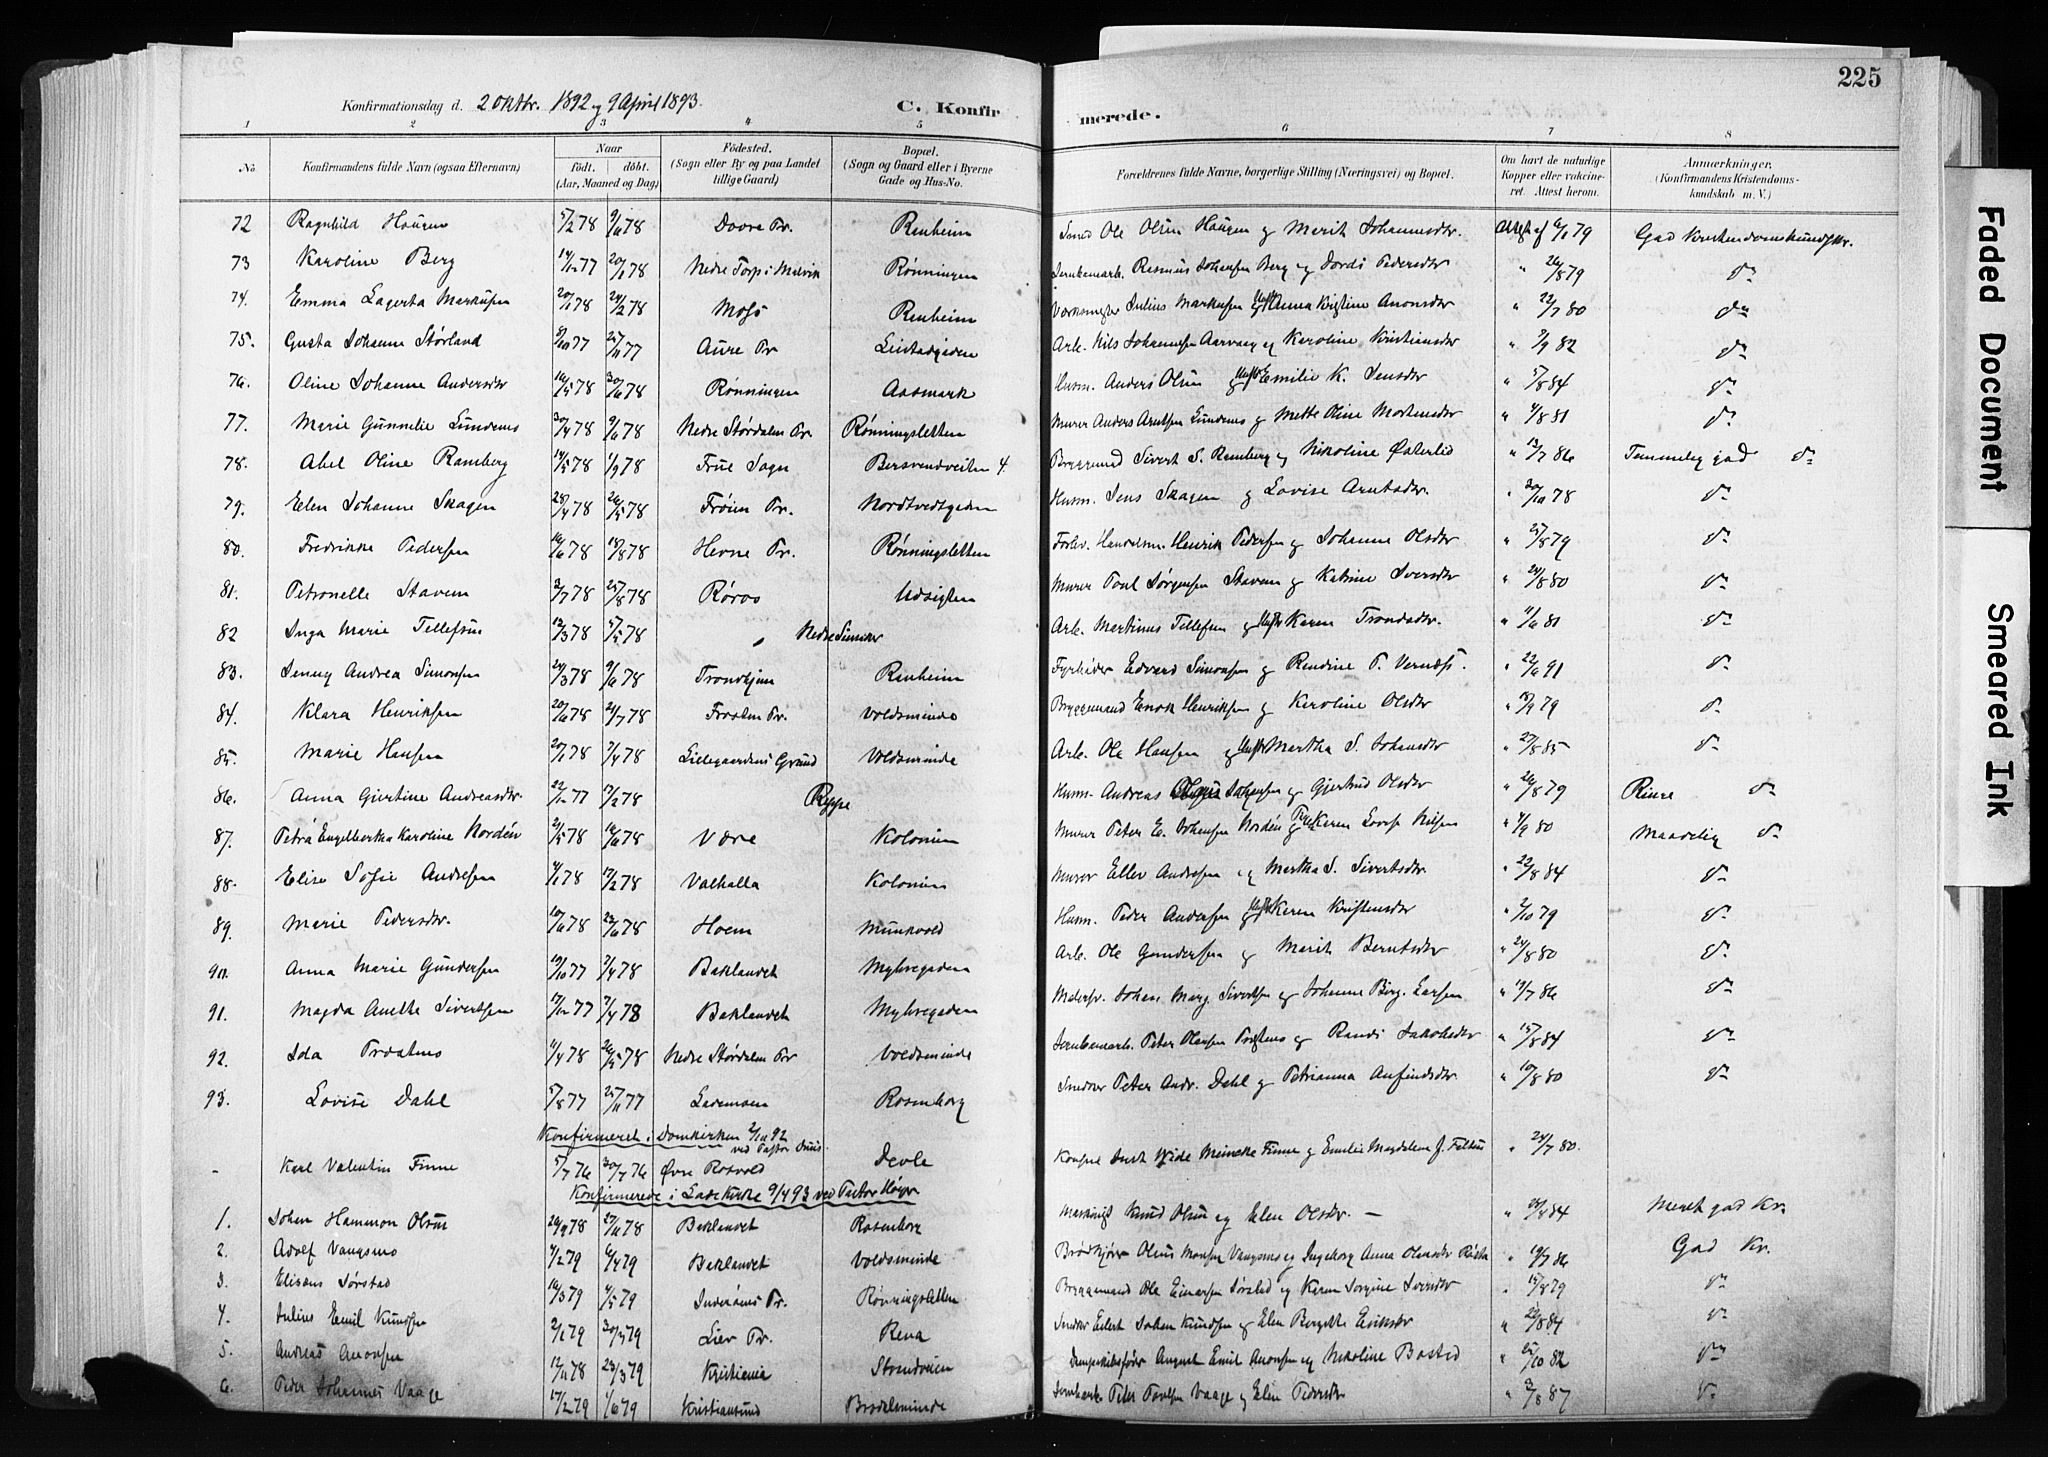 225
Konfirmationsdag d. 2 oktbr. 1892 og 9 April 1893. C. Konfir merede.
1 2 3 4 5 6 7 8
No Konfirmandens fulde Navn (ogsaa Efternavn) Naar født. døbt. (Aar, Maaned og Dag) Fødested. (Sogn eller By og paa Landet lillige Gaard) Bopæl. (Sogn og Gaard eller i Byerne Gade og Hus-No. Forældrenes fulde Navne, borgerlige Stilling (Næringsvei) og Bopæl. Om havt de naturlige Kopper eller vakcineret. Attest herom. Anmærkninger, (Konfirmandens Kristendomskundskab m. V.)
72 Ragnhild Haugen 5/2 78 9/6 78 Dovre Pr. Renheim Smed Ole Olsen Haugen og Marit Johannesdtr. Attest af 6/1 79 God Kristendomskundskr.
73 Karoline Berg 14/12 77 20/1 78 Nedre Torp i Malvik Rønningen Jernbanearb. Rasmus Johansen Berg og Dordi Pedersdtr " 26/8 79 do
74. Emma Lagerta Markusen 20/1 78 24/2 78 Moss Renheim Værksmester Julius Markusen og Hust. Anna Kristine Aronsdtr " 22/7 80 do
75. Gusta Johanne Størland 8/10 77 25/11 77 Aure Pr Leistadgaden Arb. Nils Johannesen Aarvaag og Karoline Kristiansdtr " 7/9 82 do
76. Oline Johanne Andersdtr 16/5 78 30/6 78 Rønningen Aasmark Husm. Anders Olsen og Hust. Emilie K. Jensdtr " 5/8 84 do
77. Marie Gunnelie Lundemo 30/4 78 9/6 78 Nedre Størdalen Pr. Rønningsletten Murer Anders Arntsen Lundemo og Mette Oline Mortensdtr " 4/8 81 do
78. Abel Oline Ramberg 14/5 78 1/9 78 Frue Sogn Bersvendveiten 4. Bryggemand Sivert S. Ramberg og Nikoline Østerlid " 13/7 86 Temmelig god do
79. Elen Johanne Skagen 28/4 78 26/5 78 Frøien Pr. Nordtvedtgaden Husm. Jens Skagen og Lovise Arntsdtr. " 30/10 78 do
80. Fredrikke Pedersen 16/6 78 18/8 78 Hevne Pr. Rønningsletten Forhv. Handelsm. Henrik Pedersen og Johanne Olsdtr " 25/8 79 do
81. Petronelle Staven 3/7 78 25/8 78 Røros Udsigten Murer Poul Jørgensen Staven og Katrine Iversdtr " 24/8 80 do
82 Inga Marie Tellefsen 12/3 78 5/5 78 Nedre Arb. Martinus Tellefsen og Hust. Karen Trondsdtr. " 11/6 81 do
83. Jenny Andrea Simonsen 24/3 78 9/6 78 Trondhjem Renheim Fyrbøder Edvard Simonsen og Rendine P. Vernæs. " 22/6 91 do
84. Klara Henriksen 20/6 78 21/7 78 Frosten Pr. Voldsminde Bryggemand Enok Henriksen og Karoline Olsdtr " 18/9 79 do
85. Marie Hansen 20/1 78 7/4 78 Lillegaardens Grund Voldsminde Arb. Ole Hansen og Hust. Martha S. Johansdtr " 27/8 85 do
86. Anna Gjertine Andreasdtr. 22/12 77 17/2 78 Reppe Husm. Andreas Johansen og Gjertrud Olsdtr " 26/8 79 Ringe do
87. Petra Engelbertha Karoline Nordén 21/5 78 16/6 78 Være Kolonien Murer Peter E. Johansen Nordén og Karen Lovise Nilsen " 4/9 80 Maadelig do
88. Elise Sofie Andresen 4/1 78 17/2 78 Valhalla Kolonien Murer Eller Andresen og Martha S. Sivertsdtr. " 22/8 84 do
89. Marie Pedersdtr. 10/6 78 23/6 78 Hoem Munkvold Husm. Peder Andersen og Hust. Karen Kristensdtr " 2/10 79 do
90. Anna Marie Gundersen 19/10 77 7/4 78 Baklandet Myhregaden Arb. Ole Gundersen og Marit Berntsdtr " 24/8 80 do
91. Magda Anette Sivertsen 17/12 77 7/4 78 Baklandet Myhregaden Malersv. Johan Marg. Sivertsen og Johanne Berg. Larsen " 19/7 86 do
92. Ida Proatmo 11/4 78 26/5 78 Nedre Størdalen Pr Voldsminde Jernbanearb. Peter Olausen og Randi Jakobsdtr " 15/8 84 do
93. Lovise Dahl 5/8 77 25/11 77 Lademoen Rosenborg Snedker Peter Andr. Dahl og Petrianna Anfindsdtr " 10/8 80 do
Konfirmeret i Domkirken 2/10 92 ved Pastor
- Karl Valentin Finne 5/7 76 30/7 76 Øvre Rotvold Devle Konsul Just Wide Meincke Finne og Emelie Magdalene f. " 28/7 80.
Konfirmerede i Lade Kirke 9/4 93 ved Pastor Høyer
1. Johan Hammon Olsen 20/9 78 27/11 78 Baklandet Rosenborg Maskinist Knud Olsen og Elen Olsdtr. — " 28/8 84 Meret god Kr.
2. Adolf Vangsmo 4/2 79 6/4 79 Baklandet Voldsminde Brødkjører Olaus Monsen Vangsmo og Ingeborg Anna Olausdtr " 19/7 86 God Kr.
3. Elisæus Sørstad 16/3 79 4/5 79 Inderøens Pr. Rønningsletten Bryggemand Ole Einarsen Sørstad og Karen Sorgine Iversdtr " 15/8 79 do
4. Julius Emil Knudsen 2/1 79 30/3 79 Lier Pr. Rena Snedker Edert Johan Knudsen og Elen Bergitte Eriksdtr " 22/8 84 do
5. Andreas Aronsen 12/11 78 23/3 79 Kristiania Strandveien Dampskibsfører August Emil Aronsen og Nikoline Bostad " 25/10 82 do
6. Peder Johannes Vaage 17/2 79 1/6 79 Kristiansund Brodalsminde Jernbarb. Peter Paulsen Vaage og Elen Pedersdtr " 3/8 87 do
Faded Document
Smeared Ink